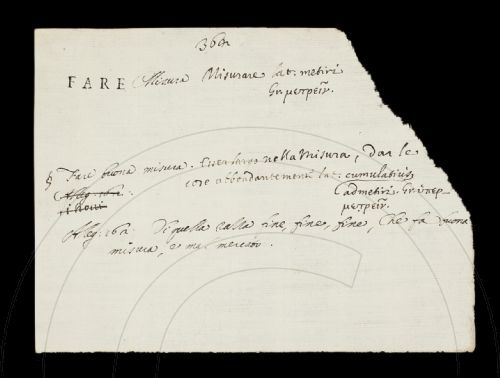 FARE Misura Misurare lat: metiri
Gr. μετρεῖν.
§ Fare buona misura. nella Misura, dar le
cose abbondantemente lat: cumulatius
admetiri. Gr. ὑπερ
μετρεῖν.
Alleg: 162.
Alleg: 162. Di quella calla fine, fine, fine, che fa buona
misura, e